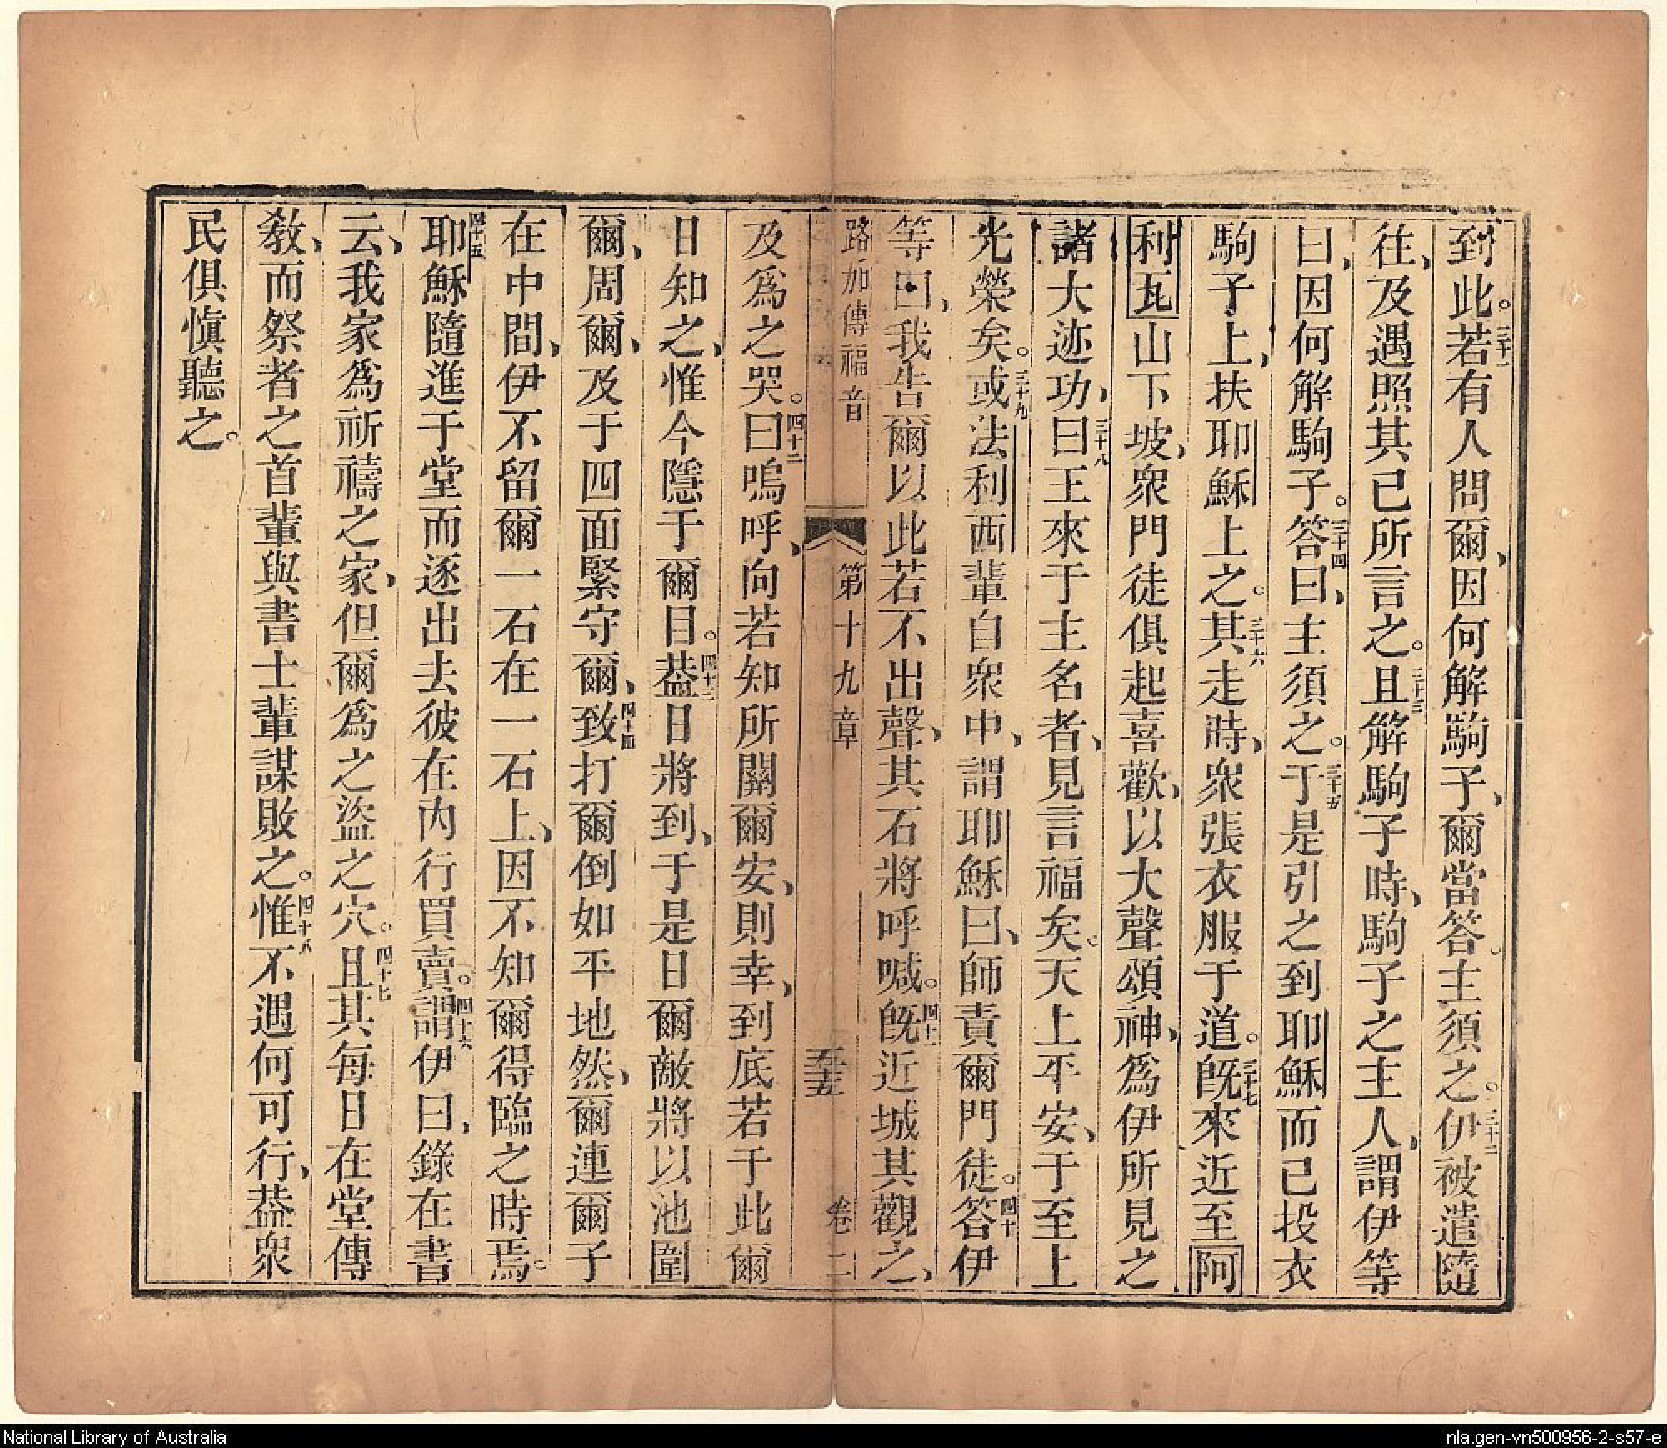 到此。三十一若有人問爾、因何解駒子、爾當答。主須之。三十二伊被遣隨
往、及遇照其已所言之。三十三且解駒子時、駒子之主人、謂伊等
曰、因何解駒子。三十四答曰、主須之。三十五于是引之到耶穌而已投衣
駒子上、扶耶穌上之。三十六其走時、衆張衣服于道。三十七旣來近至阿
利瓦山下坡、衆門徒俱起喜歡、以大聲頌神、爲伊所見之
諸大迹功、三十八曰王來于主名者、見言福矣。天上平安、于至上
光榮矣。三十九或法利西輩自衆中、謂耶穌曰、師責爾門徒。四十答伊
等曰、我告爾以此若不出聲、其石將呼喊。四十一旣近城其觀之、
路加傳福音 第十九章 五十五 卷二
及爲之哭。四十二曰嗚呼、向若知所關爾安、則幸、到底若于此爾
日知之、惟今隱于爾目。四十三葢日將到、于是日爾敵將以池圍
爾、周爾、及于四面緊守爾、四十四致打爾倒如平地然、爾連爾子
在中間、伊不留爾一石在一石上、因不知爾得臨之時焉。
四十五耶穌隨進于堂而逐出去彼在內行買賣。四十六謂伊曰、錄在書
云、我家爲祈禱之家、但爾爲之盜之穴。四十七且其每日在堂傳
教、而祭者之首輩與書士輩謀敗之。四十八惟不遇何可行、葢衆
民俱愼聽之。
National Library of Australia
nla.gen-vn500956-2-s57-e